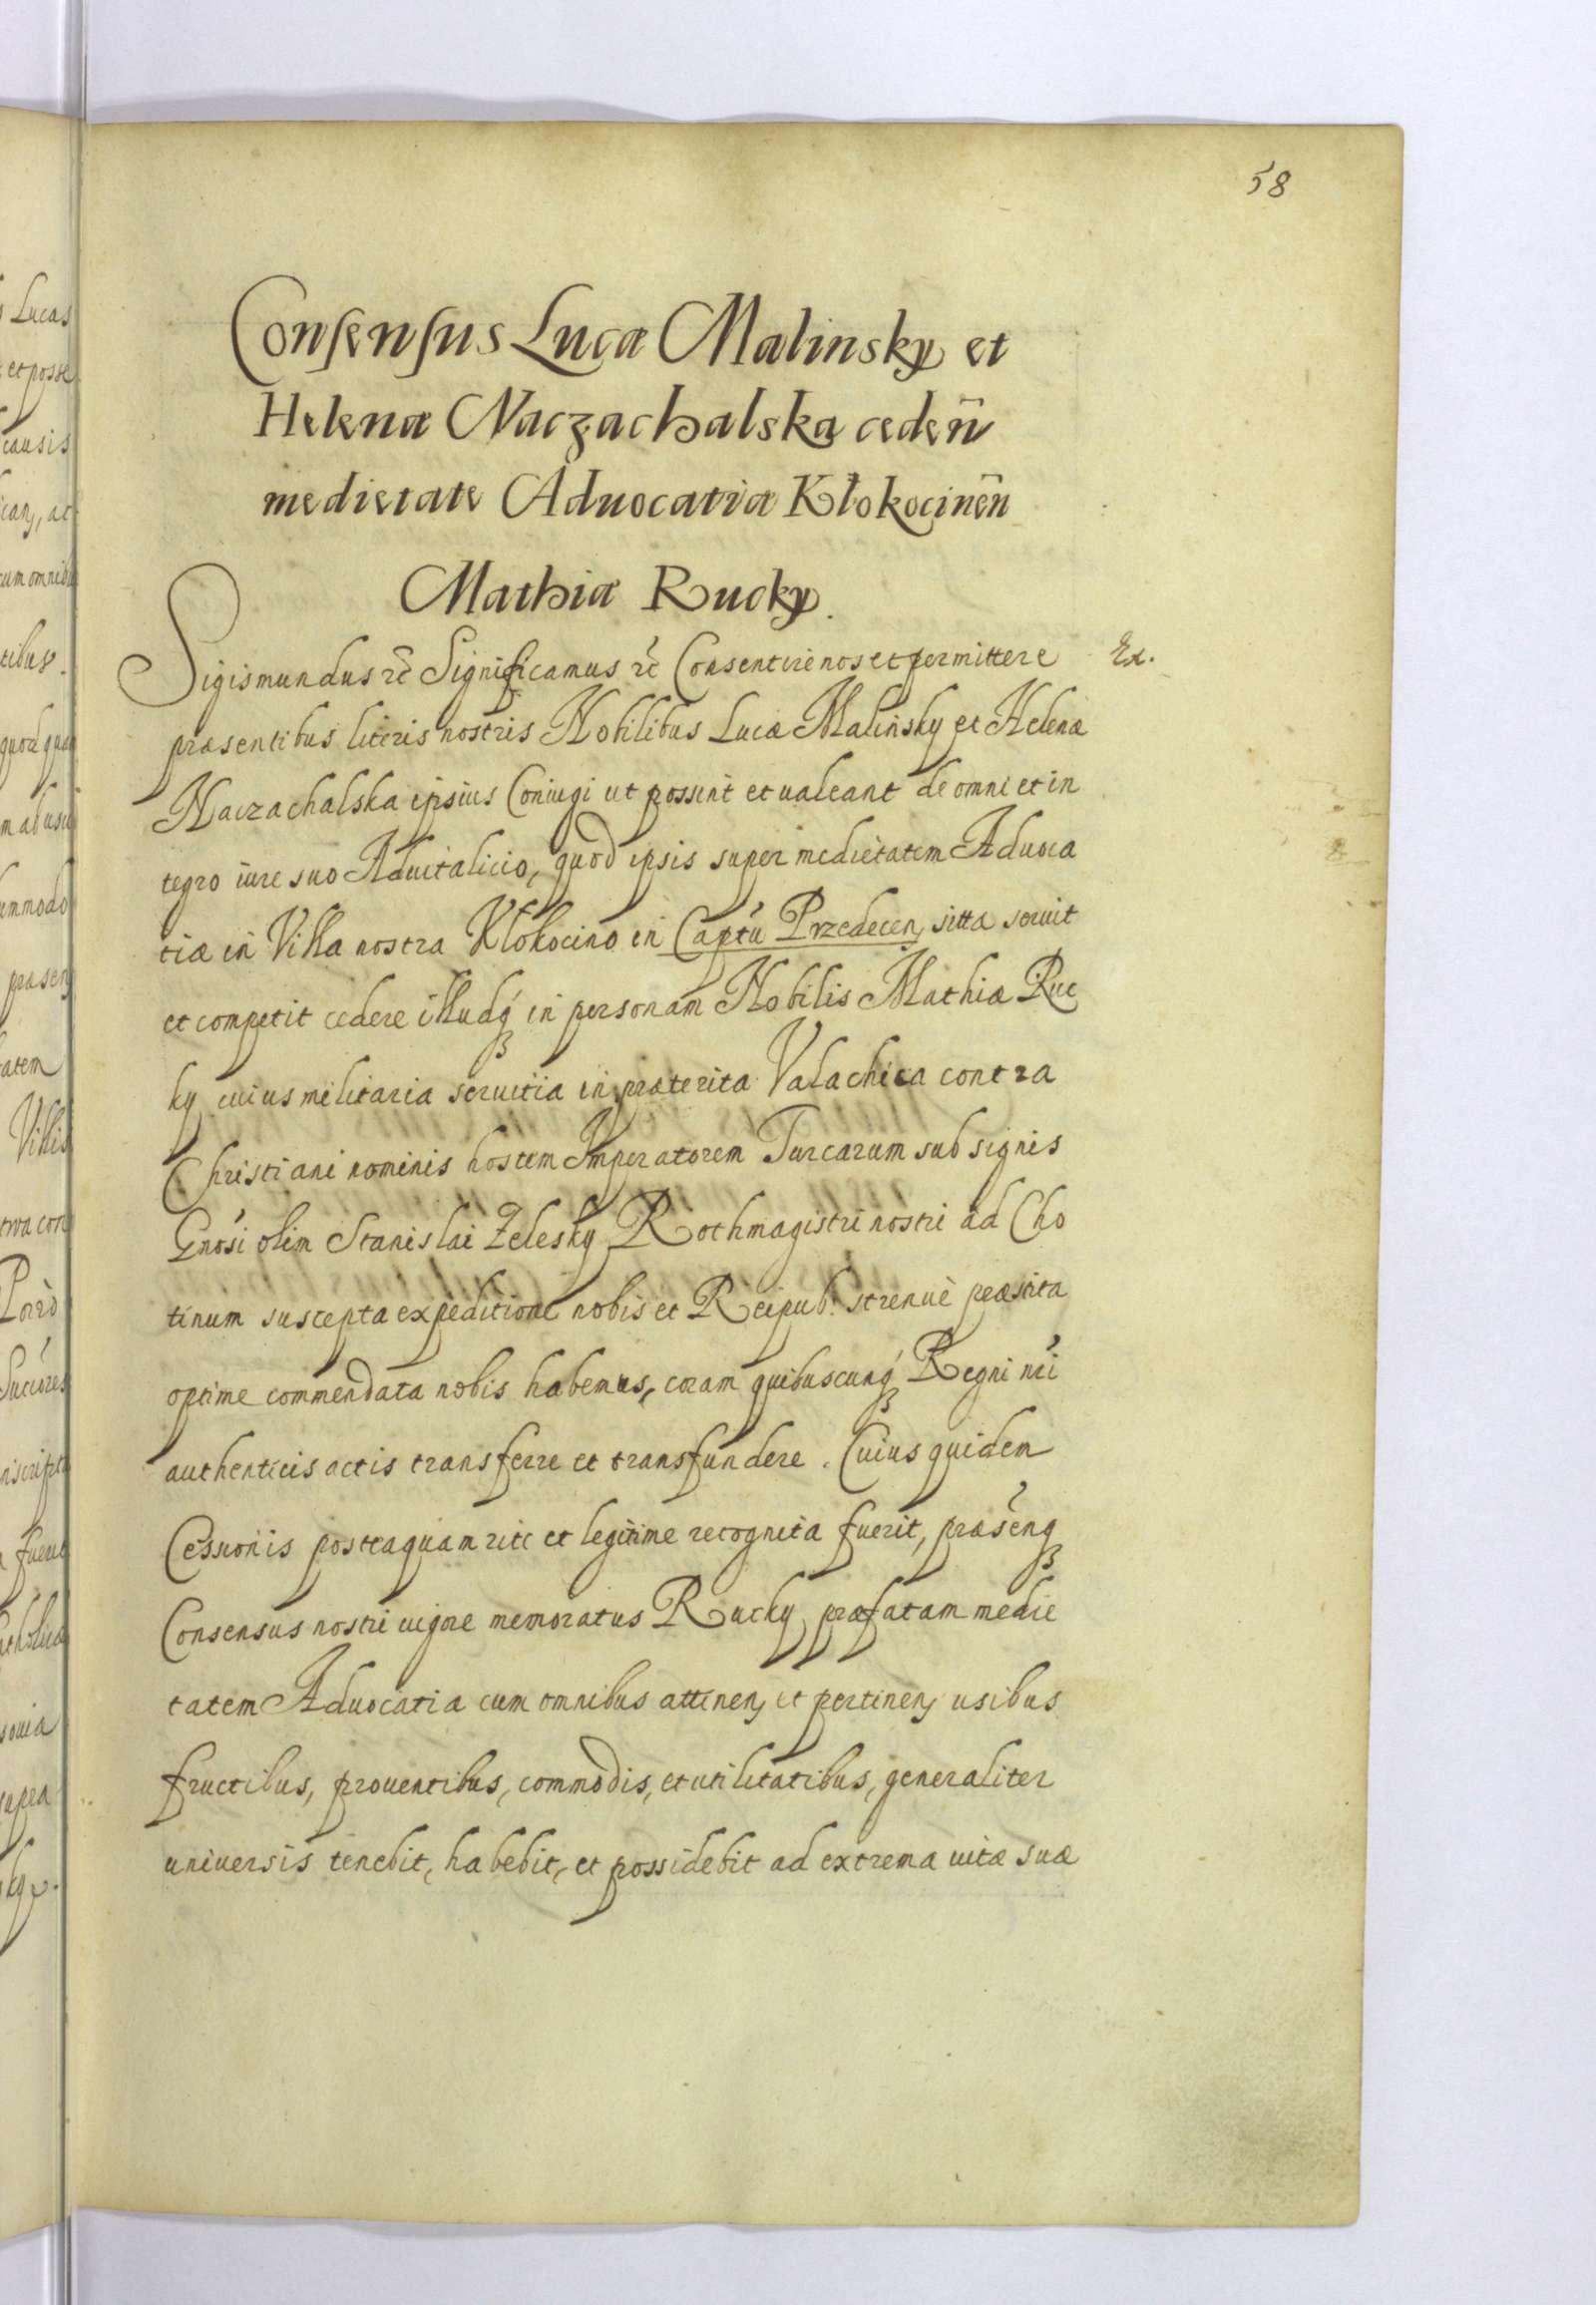 58
Consensus Lucæ Malinsky et
Helenæ Naczachalska ceden̄
medietate Aduocatiæ Kłokocinen̄
Mathiæ Rucky.
Sigismundus etc̃ Significamus etc̃ Consentire nos et permittere
Ex.
præsentibus literis nostris Nobilibus Lucæ Malinsky et Helenæ
Naczachalska ipsius Coniugi ut possint et ualeant de omni et in
tegro iure suo Aduitalicio, quod ipsis super medietatem Aduoca
tiæ in Villa nostra Kłokocino in Captũ Przedecen, sitta seruit
et competit cedere illudq́ in personam Nobilis Mathiæ Ruc
ky cuius militaria seruitia in præterita Valachica contra
Christiani nominis hostem Imperatorem Turcarum sub signis
Gnósi olim Stanislai Zelesky Rothmagistri nostri ad Cho
tinum suscepta expeditione nobis et Reipub. strenuè præstita
optime commendata nobis habemus, coram quibuscunq́ Regni nr̃i
authenticis actis transferre et transfundere. Cuius quidem
Cessionis posteaquam rite et legitime recognita fuerit, præsẽnq
Consensus nostri uigore memoratus Rucky præfatam medie
tatem Aduocatia cum omnibus attinen, et pertinen, usibus
fructibus, prouentibus, commodis, et utilitatibus, generaliter
uniuersis tenebit, habebit, et possidebit ad extrema uitæ suæ